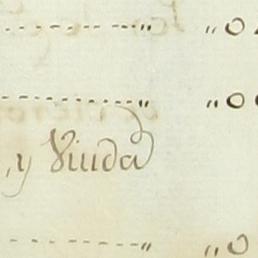 „0
„00
, y Viuda
„0